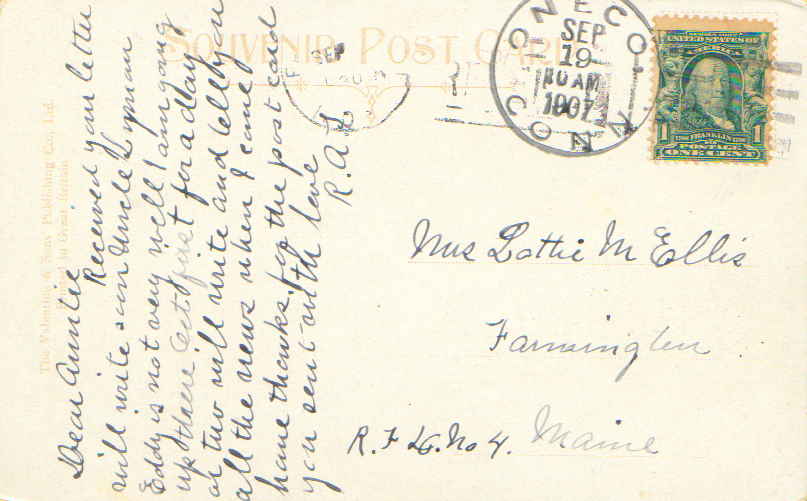 SOUVENIR POST CARD
The Valentine & Sons' Publishing Co., Ltd.
Printed in Great Britain
Dear Auntie
Received your letter
will write soon Uncle Lyman
Eddy is not very well I am going
up there Oct first for a day
or two will write and tell you
all the news when I come
home thanks for the post card
you sent with love
R. A. L
SEP
ONECO
SEP
19
10 AM
1907
CONN
UNITED STATES OF
AMERICA
1 FRANKLIN 1
POSTAGE
ONE CENT
Mrs Lottie M Ellis
Farmington
R. F. D. No 4. Maine